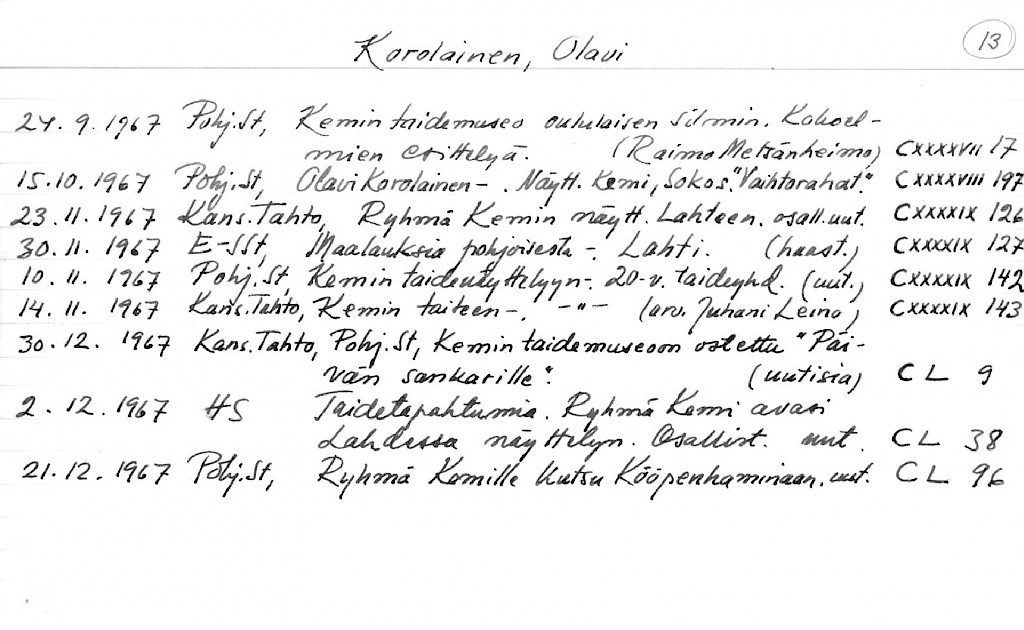 Korolainen, Olavi
13
24.9.1967 Pohj.St, Kemin taidemuseo oululaisen silmin. Kokoel-
mien esittelyä. (Raimo Metsänheimo) CXXXXVII 17
15.10.1967 Pohj.St, Olavi Korolainen -. Näytt. Kemi, Sokos. "Vaihtorahat". CXXXXVIII 197
23.11.1967 Kans.Tahto, Ryhmä Kemin näytt. Lahteen. osall. uut. CXXXXIX 126
30.11.1967 E-SSt, Maalauksia pohjoisesta -. Lahti. (haast.) CXXXXIX 127
10.11.1967 Pohj.St, Kemin taidenäyttelyyn -. 20-v. taideyhd. (uut.) CXXXXIX 142
14.11.1967 Kans.Tahto, Kemin taiteen -. -"- (arv. Juhani Leino) CXXXXIX 143
30.12.1967 Kans.Tahto, Pohj.St, Kemin taidemuseoon ostettu "Päi-
vän sankarille". (uutisia) CL 9
2.12.1967 HS Taidetapahtumia. Ryhmä Kemi avasi
Lahdessa näyttelyn. Osallist. uut. CL 38
21.12.1967 Pohj.St, Ryhmä Kemille kutsu Kööpenhaminaan. uut. CL 96